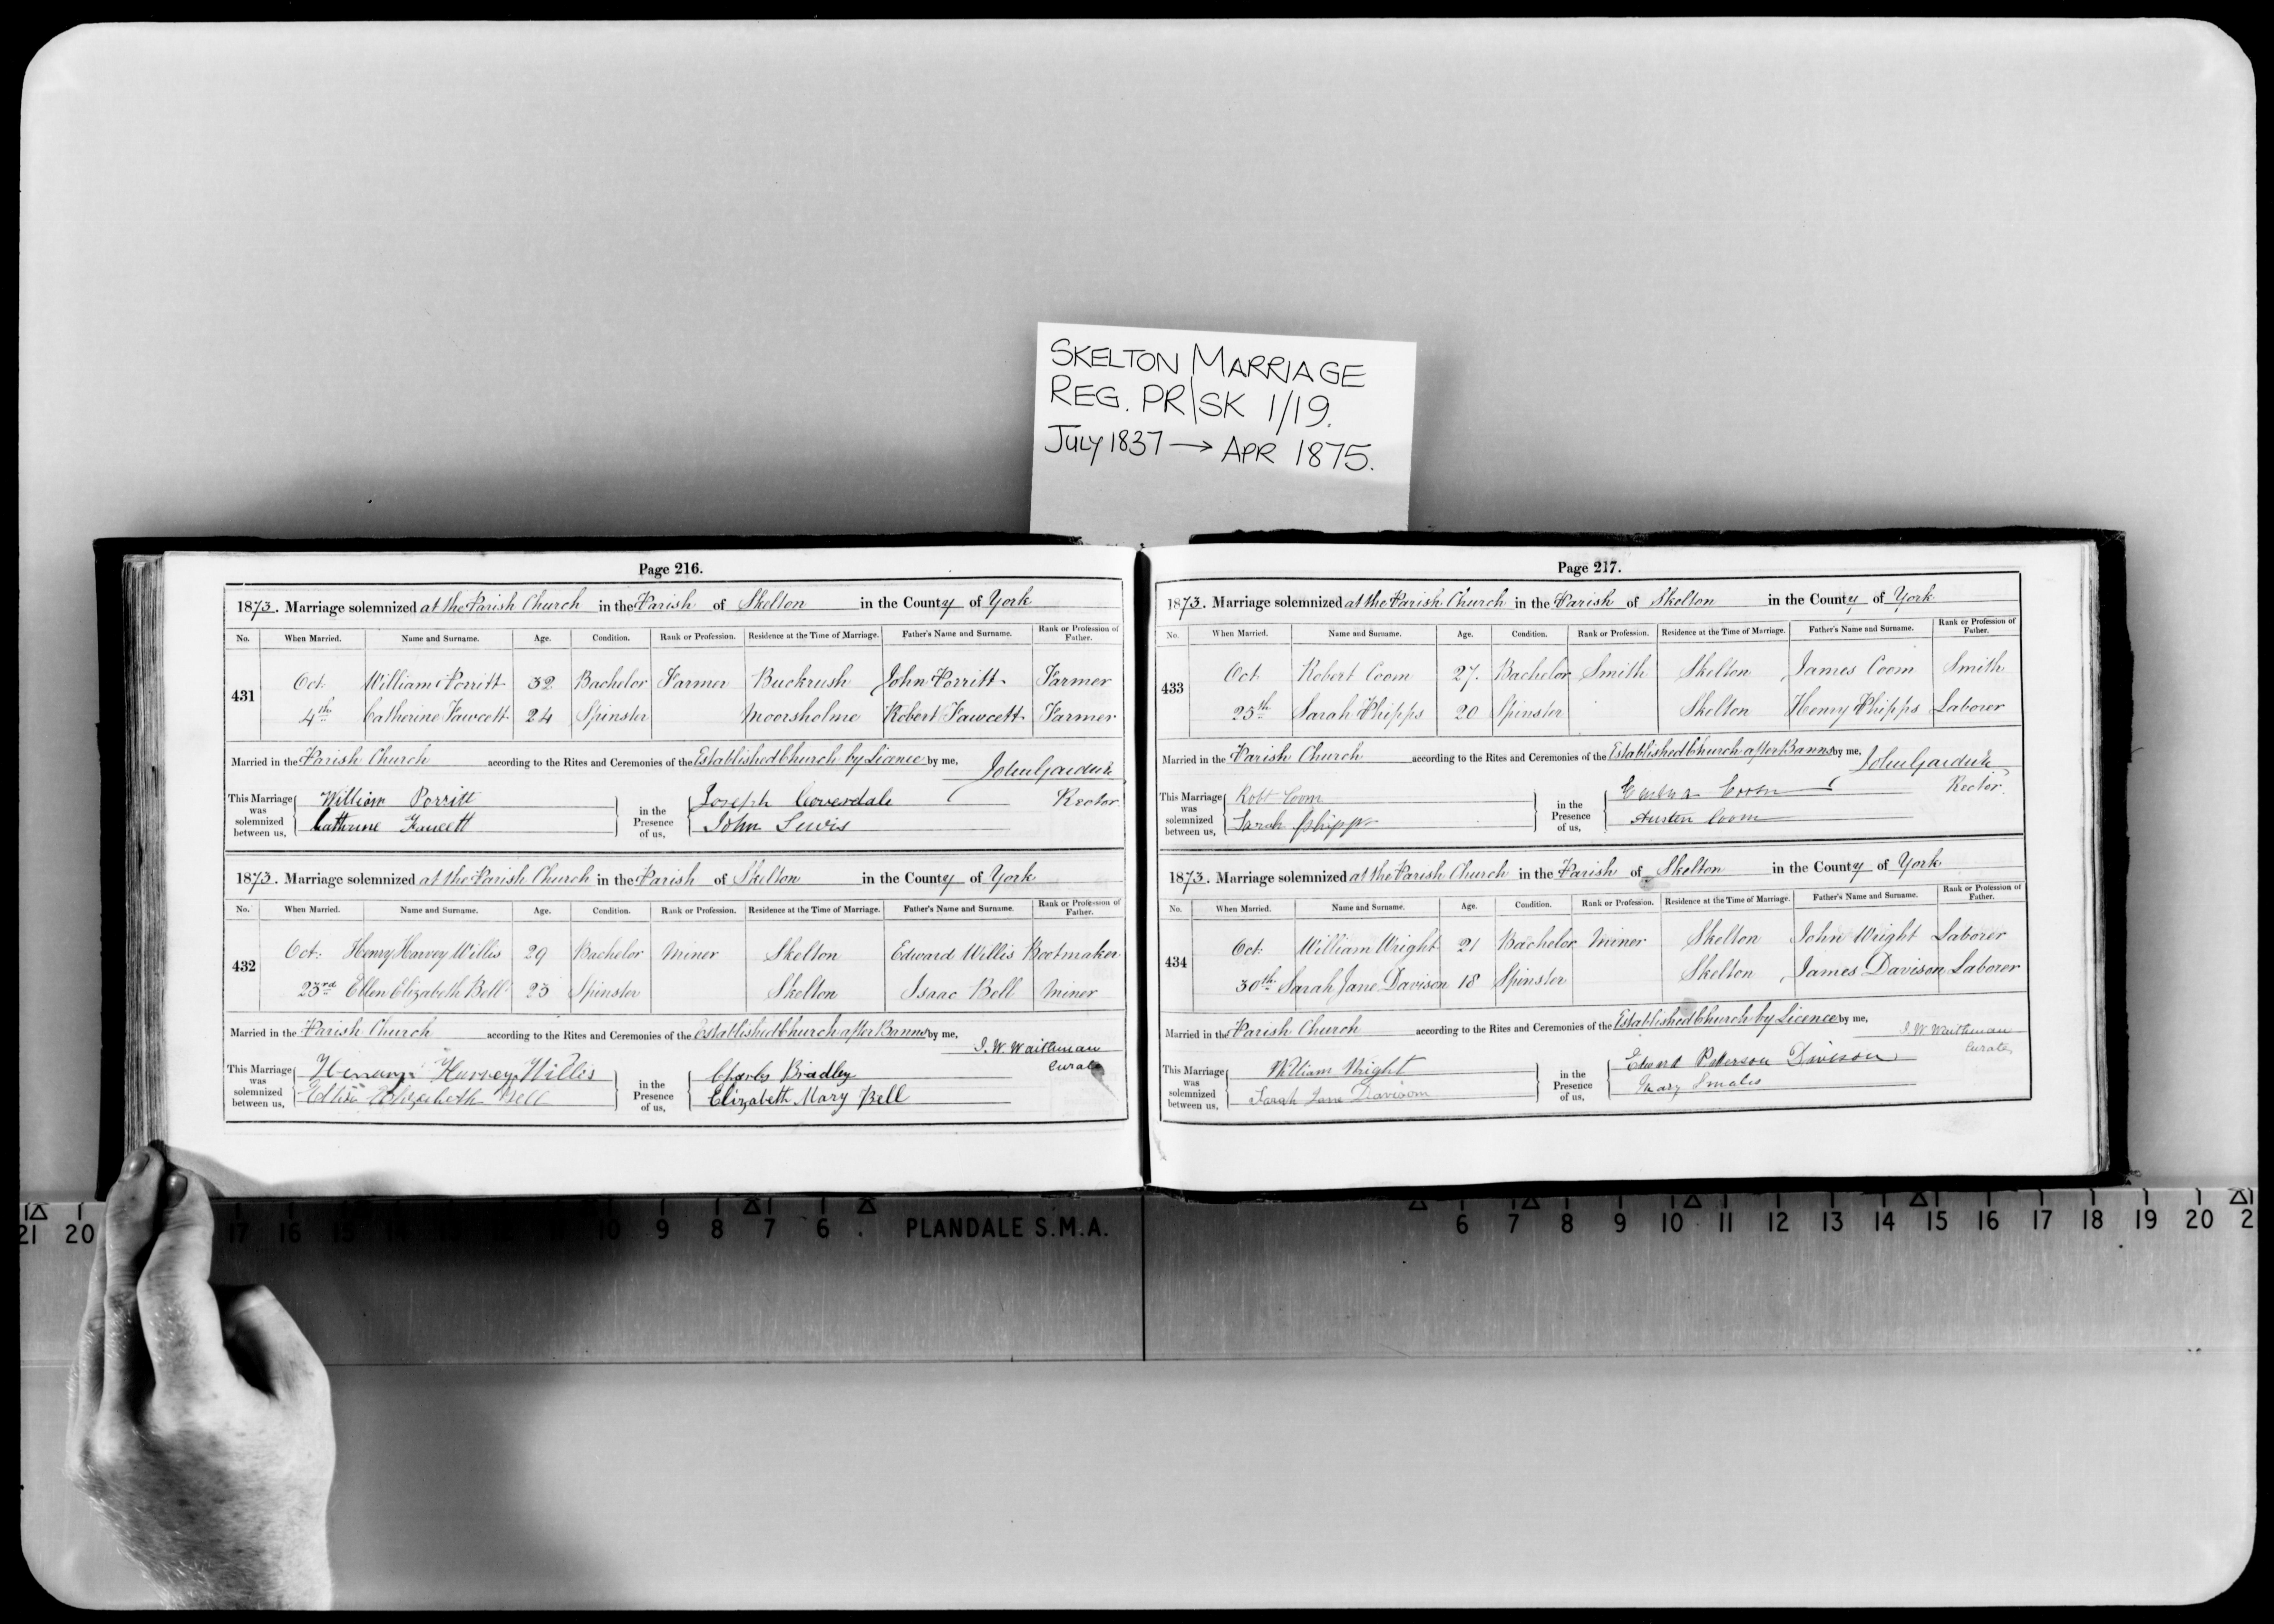 SKELTON MARRIAGE
REG. PR/SK 1/19.
JULY 1837 → APR 1875.
Page 216.
1873. Marriage solemnized at the Parish Church in the Parish of Skelton in the County of York
No. When Married. Name and Surname. Age. Condition. Rank or Profession. Residence at the Time of Marriage. Father's Name and Surname. Rank or Profession of Father.
431 Oct. William Porritt 32 Bachelor Farmer Buckrush John Porritt Farmer
4th Catherine Fawcett 24 Spinster Moorsholme Robert Fawcett Farmer
Married in the Parish Church according to the Rites and Ceremonies of the Established Church by Licence by me,
This Marriage was solemnized between us, William Porritt in the Presence of us, Joseph Coverdale Rector.
Catherine Faucett John Lewis
1873. Marriage solemnized at the Parish Church in the Parish of Skelton in the County of York
No. When Married. Name and Surname. Age. Condition. Rank or Profession. Residence at the Time of Marriage. Father's Name and Surname. Rank or Profession of Father.
432 Oct. Henry Harvey Willis 29 Bachelor Miner Skelton Edward Willis Bootmaker
23rd Ellen Elizabeth Bell 23 Spinster Skelton Isaac Bell Miner
Married in the Parish Church according to the Rites and Ceremonies of the Established Church after Banns by me,
J. W. Waithman
This Marriage was solemnized between us, Harvey Willis in the Presence of us, Charles Bradley Curate
Elizabeth Bell Elizabeth Mary Bell
Page 217.
1873. Marriage solemnized at the Parish Church in the Parish of Skelton in the County of York
No. When Married. Name and Surname. Age. Condition. Rank or Profession. Residence at the Time of Marriage. Father's Name and Surname. Rank or Profession of Father.
433 Oct. Robert Coom 27. Bachelor Smith Skelton James Coom Smith
25th Sarah Phipps 20 Spinster Skelton Henry Phipps Laborer
Married in the Parish Church according to the Rites and Ceremonies of the Established Church after Banns by me,
This Marriage was solemnized between us, Robt Coom in the Presence of us, Coom Rector.
Sarah Phipps Austen Coom
1873. Marriage solemnized at the Parish Church in the Parish of Skelton in the County of York
No. When Married. Name and Surname. Age. Condition. Rank or Profession. Residence at the Time of Marriage. Father's Name and Surname. Rank or Profession of Father.
434 Oct. William Wright 21 Bachelor Miner Skelton John Wright Laborer
30th Sarah Jane Davison 18 Spinster Skelton James Davison Laborer
Married in the Parish Church according to the Rites and Ceremonies of the Established Church by Licence by me,
J. W. Waithman
This Marriage was solemnized between us, William Wright in the Presence of us, Curate
Sarah Jane Davison Mary Smales
21 20 17 16 15 14 10 9 8 7 6 PLANDALE S.M.A. 6 7 8 9 10 11 12 13 14 15 16 17 18 19 20 2